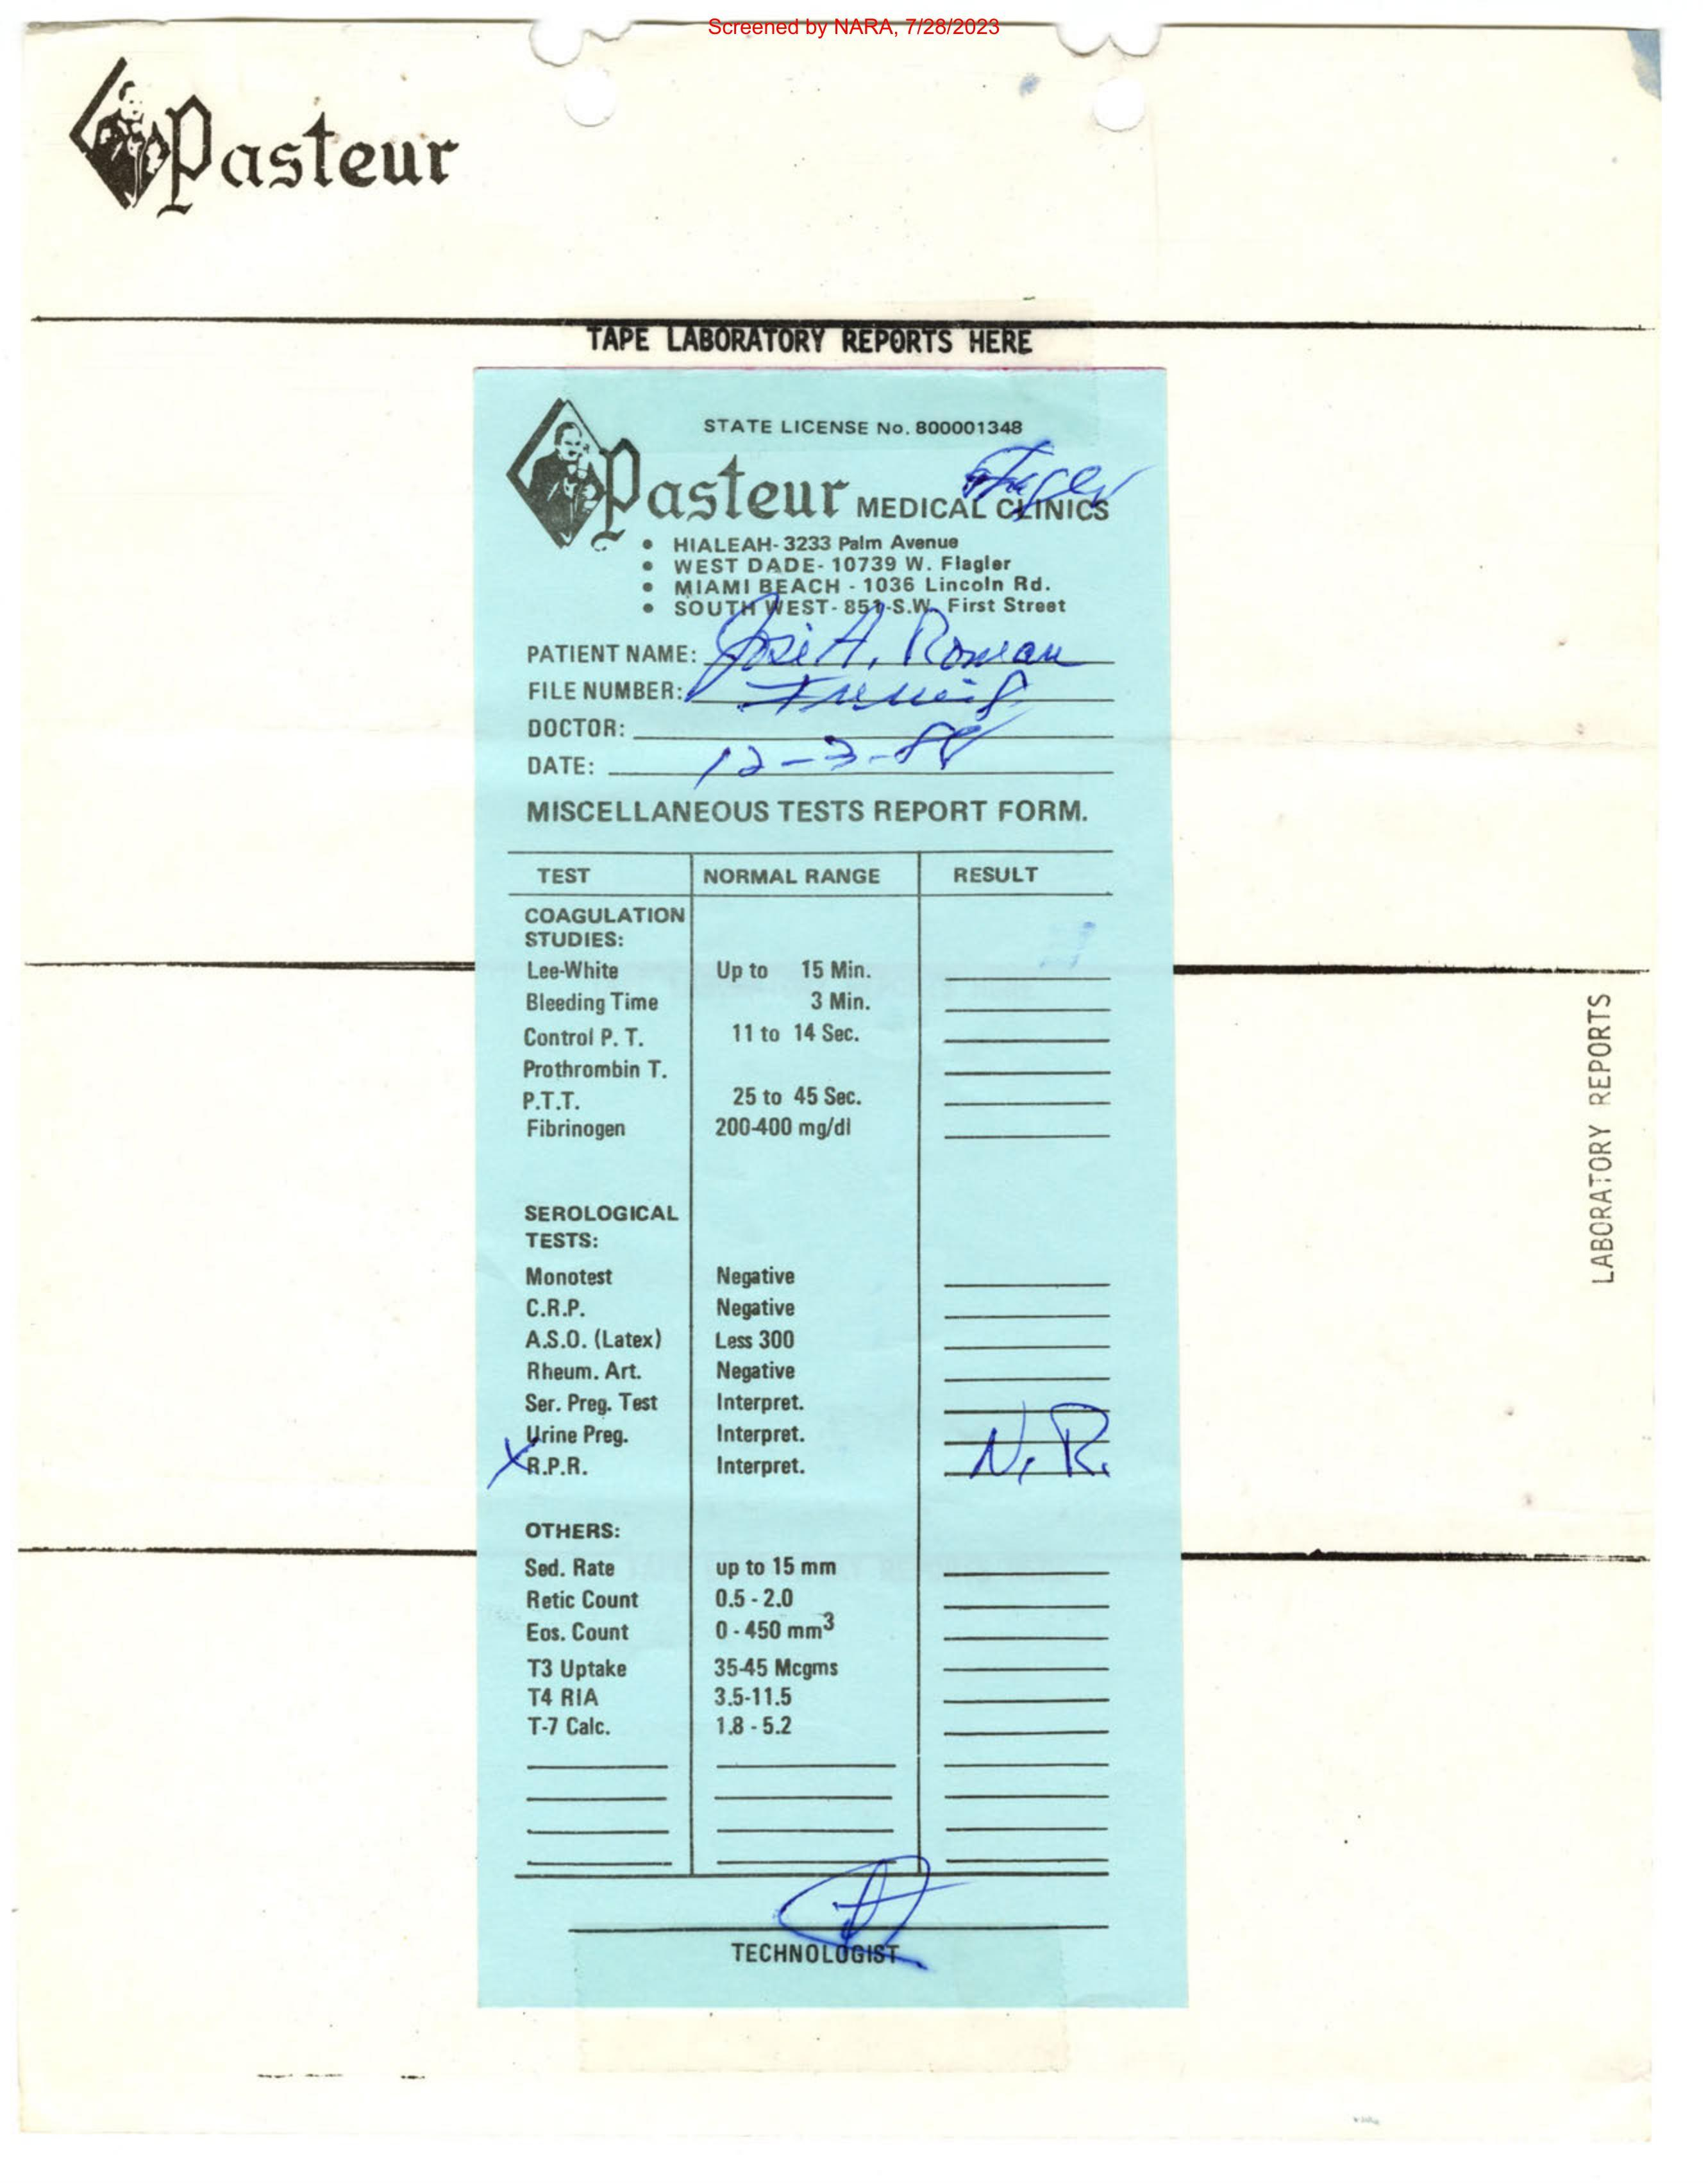 Screened by NARA, 7/28/2023
Pasteur
TAPE LABORATORY REPORTS HERE
STATE LICENSE No. 800001348
Flagler
Pasteur MEDICAL CLINICS
• HIALEAH- 3233 Palm Avenue
• WEST DADE- 10739 W. Flagler
• MIAMI BEACH - 1036 Lincoln Rd.
• SOUTH WEST- 851-S.W. First Street
PATIENT NAME: José A. Roman
FILE NUMBER:
DOCTOR:
DATE: 12-3-88
MISCELLANEOUS TESTS REPORT FORM.
TEST NORMAL RANGE RESULT
COAGULATION
STUDIES:
Lee-White Up to 15 Min.
Bleeding Time 3 Min.
Control P. T. 11 to 14 Sec.
Prothrombin T.
P.T.T. 25 to 45 Sec.
Fibrinogen 200-400 mg/dl
SEROLOGICAL
TESTS:
Monotest Negative
C.R.P. Negative
A.S.O. (Latex) Less 300
Rheum. Art. Negative
Ser. Preg. Test Interpret.
Urine Preg. Interpret.
X R.P.R. Interpret. N.R.
OTHERS:
Sed. Rate up to 15 mm
Retic Count 0.5 - 2.0
Eos. Count 0 - 450 mm3
T3 Uptake 35-45 Mcgms
T4 RIA 3.5-11.5
T-7 Calc. 1.8 - 5.2
TECHNOLOGIST
LABORATORY REPORTS